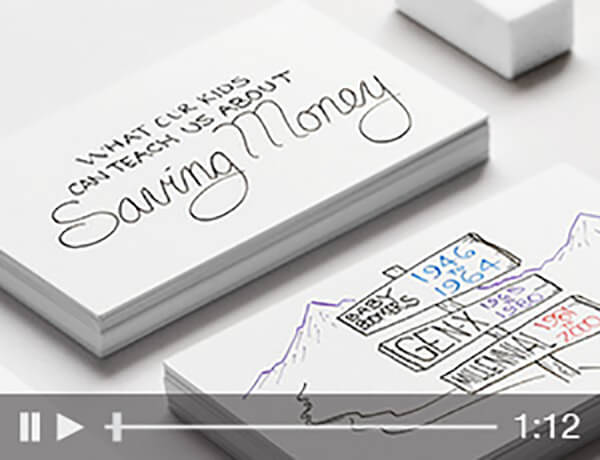 WHAT OUR KIDS
CAN TEACH US ABOUT
Saving Money
BABY
BOOMERS
1946
to
1964
GEN-X
1965
to
1980
MILLENNIAL
1981
to
2000
1:12